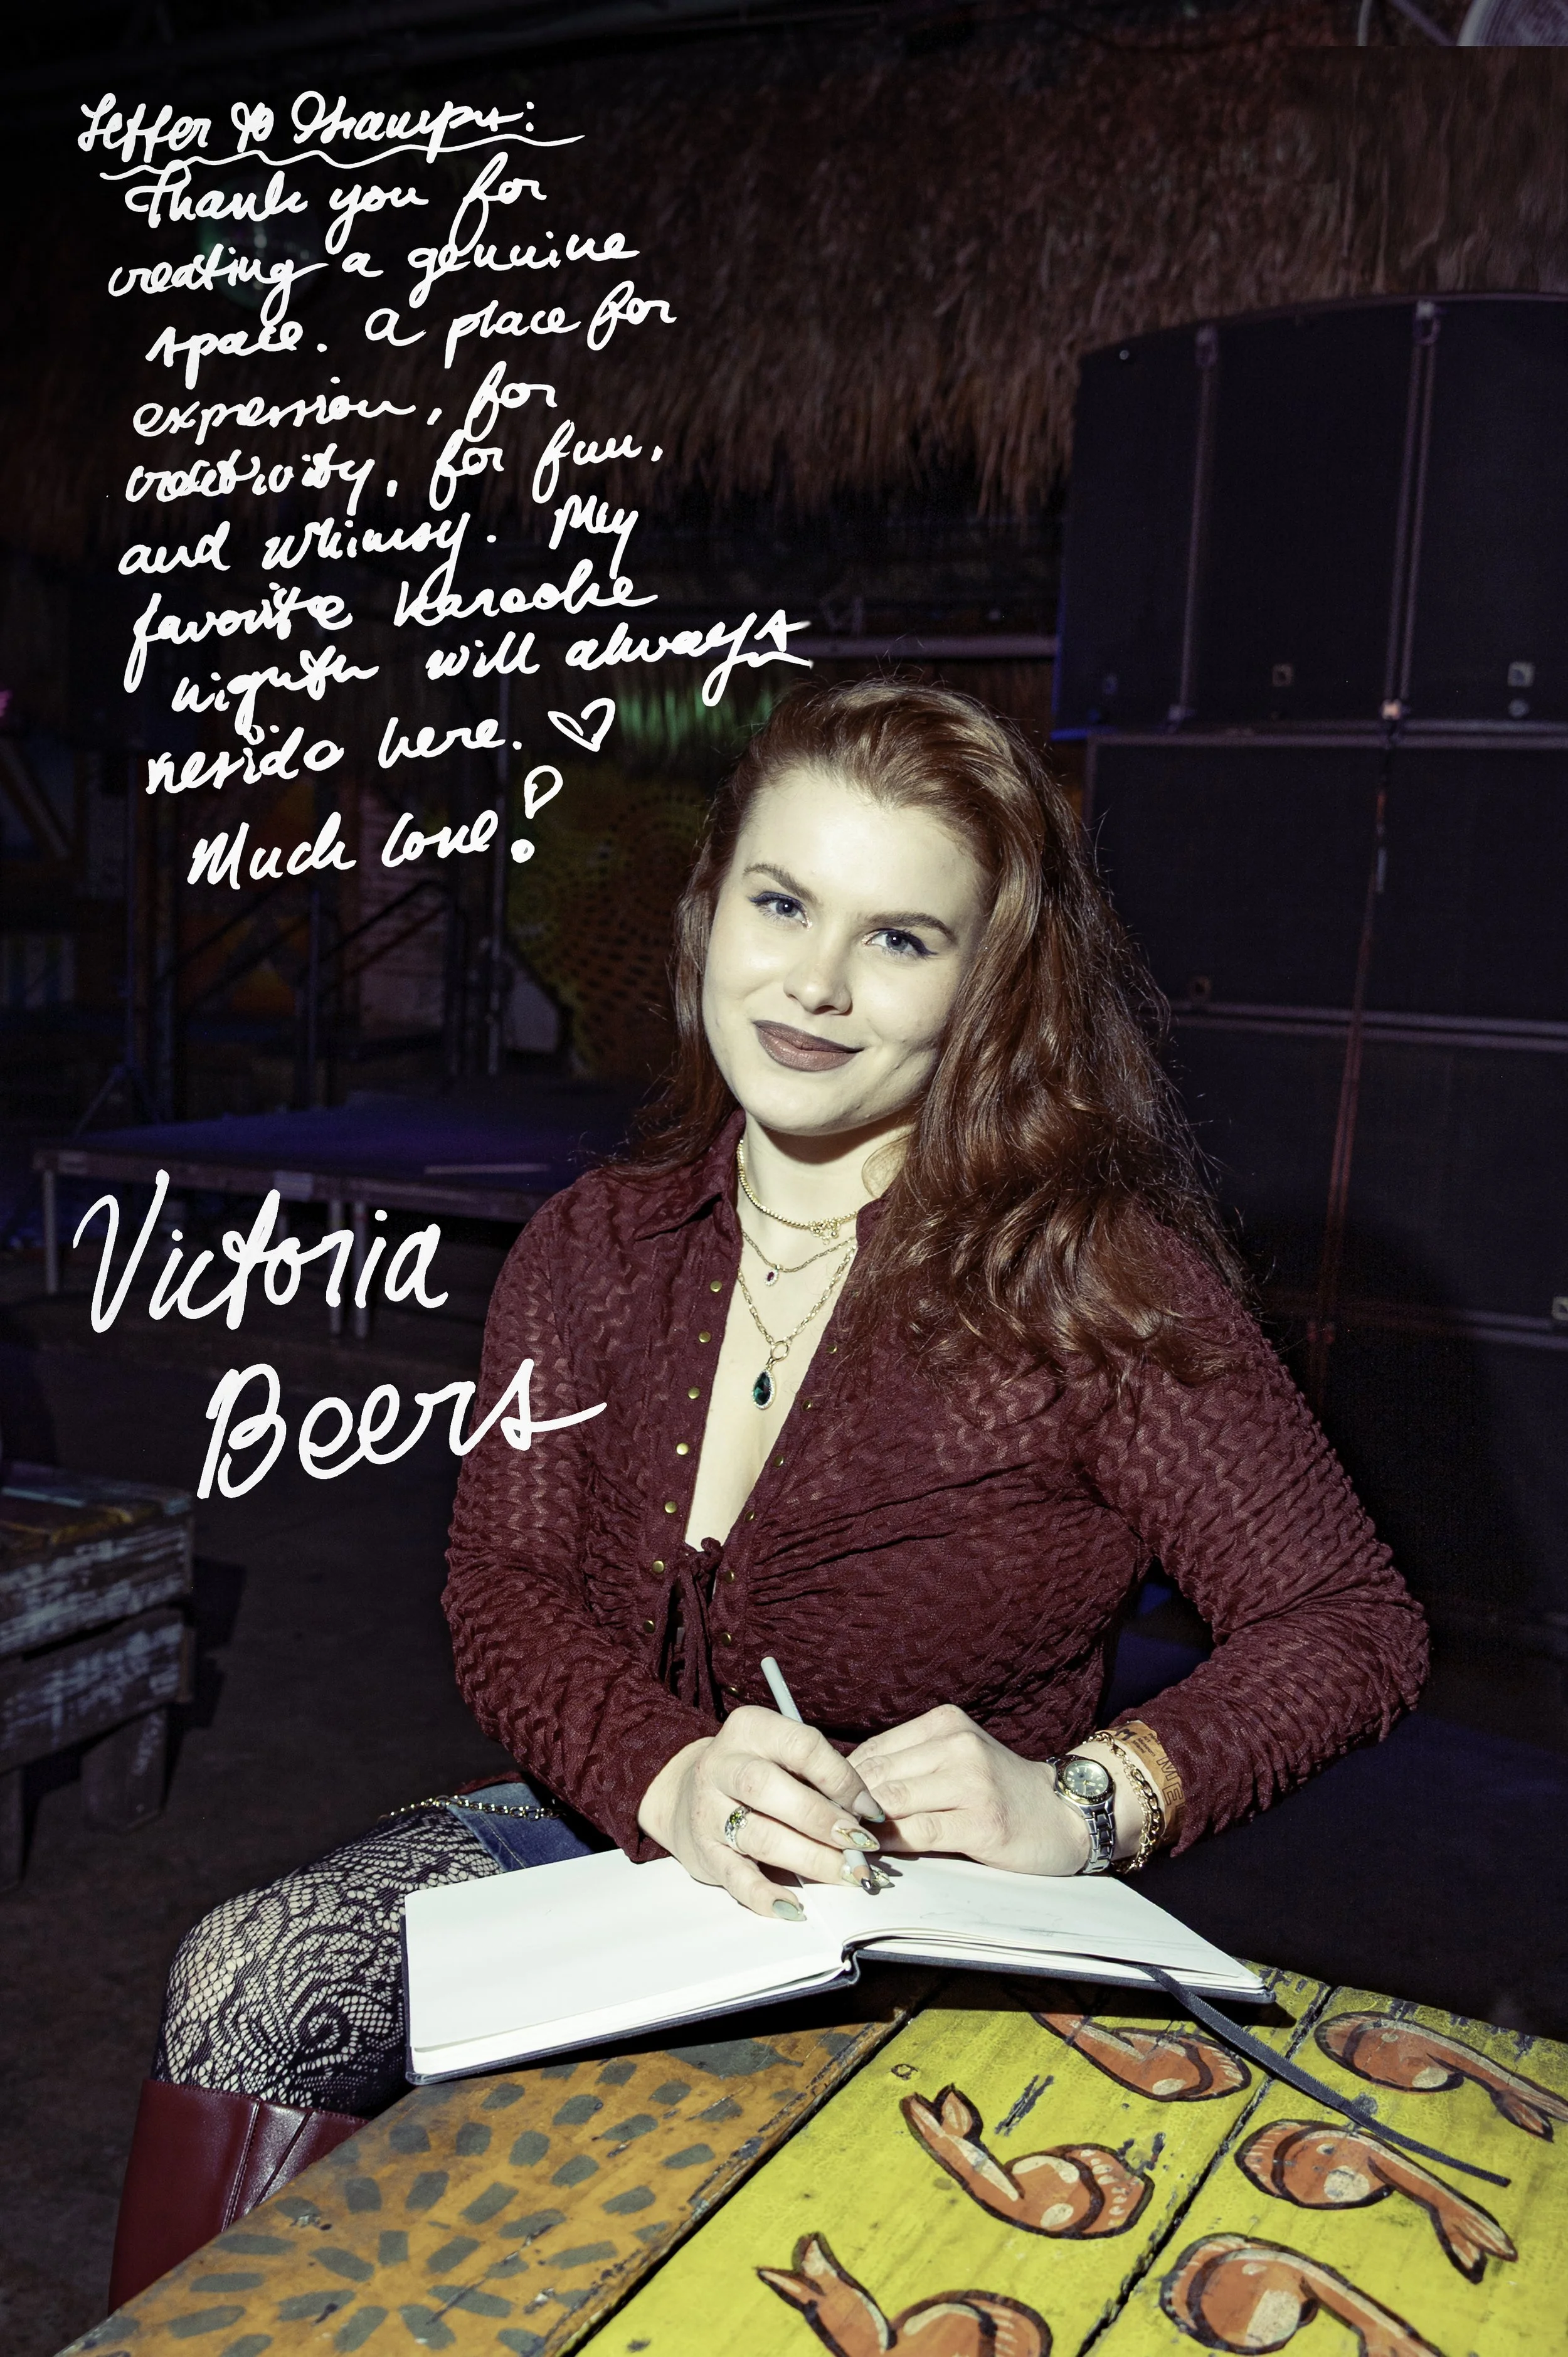 Letter to Shrampy:
Thank you for
creating a genuine
space. A place for
expression, for
creativity, for fun,
and whimsy. My
favorite karaoke
nights will always
reside here. ♡
Much love!
Victoria
Beers